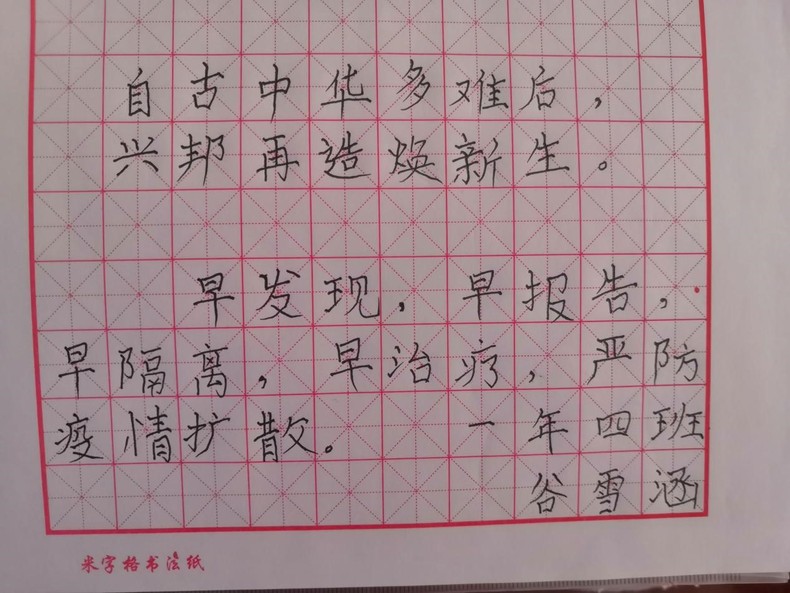 自古中华多难后，
兴邦再造焕新生。
早发现，早报告，
早隔离，早治疗，严防
疫情扩散。 一年四班
谷雪涵
米字格书法纸